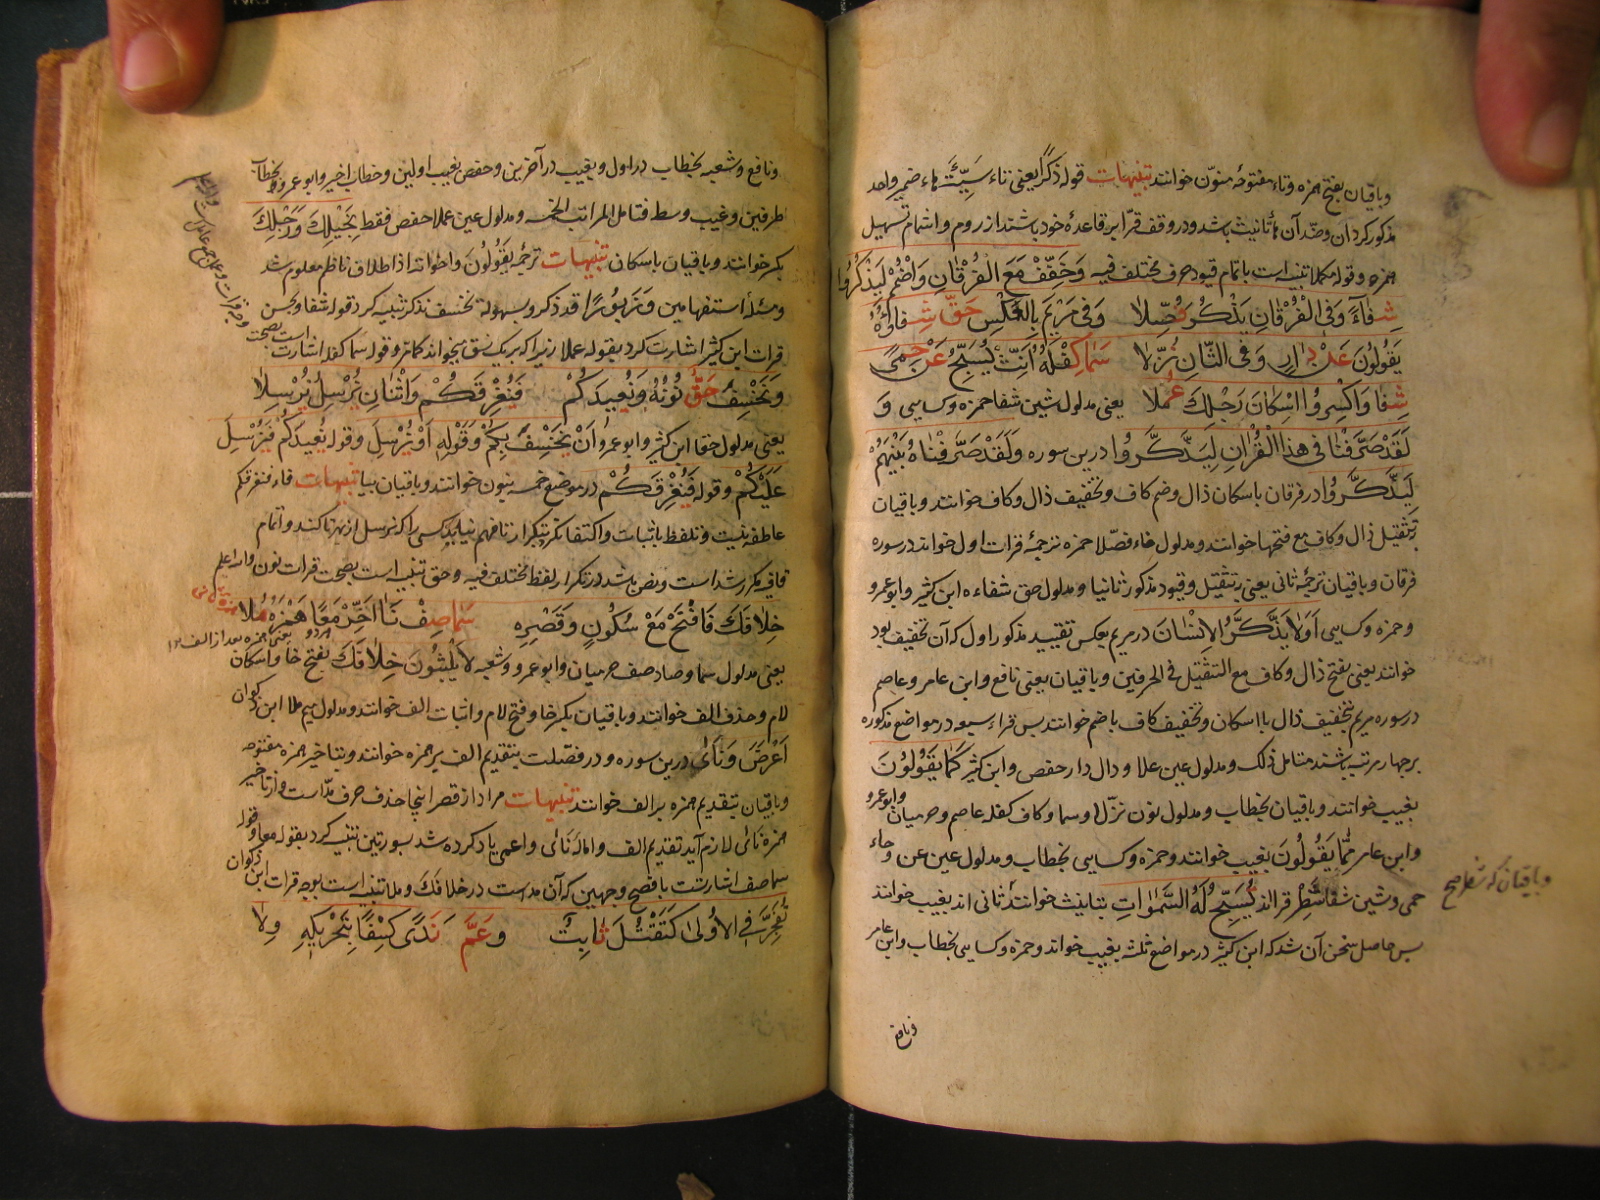 وباقیان بفتح همزه وتاء مفتوحهٔ منوّن خوانند تنبیهات قوله ذکرًا یعنی تاء سَیِّئَةً هاء ضمیر واحد
مذکر کردان وضدّ آن تأنیث باشد ودر وقف قرّا بر قاعدهٔ خود باشند از روم واشمام وتسهیل
همزه وقوله مکملا تنبیه است باتمام قیود حرف مختلف فیه وَخَفِّفْ مَعَ الْفُرْقَانِ وَاضْمُمْ لِيَذْكُرُوا
شِفَاءً وَفِی الْفُرْقَانِ یَذْكُرُ فُصِّلا وَفِی مَرْیَمٍ بِالْعَكْسِ حَقٌّ شِفَاؤُهُ
یَقُولُونَ عَنْ دَارٍ وَفِی الثَّانِ نُزِّلا سَمَا كِفْلُهُ أَنِّثْ یُسَبِّحُ عَنْ حِمًی
شِفَا وَاكْسِرُوا اِسْكَانَ رَجْلِكَ عُمَّلا یعنی مدلول شین شفا حمزه وکسایی وَ
لَقَدْ صَرَّفْنَا فِی هٰذَا الْقُرْاٰنِ لِیَذَّكَّرُوا درین سوره وَلَقَدْ صَرَّفْنَاهُ بَیْنَهُمْ
لِیَذَّكَّرُوا در فرقان باسکان ذال وضم کاف وتخفیف ذال وکاف خوانند وباقیان
بتثقیل ذال وکاف مع فتحهما خوانند ومدلول فاء فصّلا حمزه ترجمهٔ قرات اول خواند در سوره
فرقان وباقیان ترجمهٔ ثانی یعنی بتثقیل وقیود مذکور ثانیا ومدلول حق شفاءه ابن کثیر وابوعمرو
وحمزه وکسایی اَوَلَا یَذَّكَّرُ الْاِنْسَانَ در مریم بعکس تقیید مذکور اول که آن تخفیف بود
خوانند یعنی بفتح ذال وکاف مع التثقیل فی الحرفین وباقیان یعنی نافع وابن عامر وعاصم
در سوره مریم بتخفیف ذال باسکان وتخفیف کاف باضم خوانند پس قراء سبعه در مواضع مذکوره
بر چهار مرتبه باشند فتامل ذلک ومدلول عین علا ودال دار حفص وابن کثیر كَمَا یَقُولُونَ
بغیب خوانند وباقیان بخطاب ومدلول نون نزّل وسما وکاف کفله عاصم وحرمیان وابوعمرو
وابن عامر عَمَّا یَقُولُونَ بغیب خوانند وحمزه وکسایی بخطاب ومدلول عین عن وحاء
حمی وشین شفا شطر قرااند تُسَبِّحُ لَهُ السَّمٰوَاتِ بتانیث خوانند ثانی اند بغیب خوانند
وباقیان که
پس حاصل سخن آن شد که ابن کثیر در مواضع ثلثه بغیب خواند وحمزه وکسایی بخطاب وابن عامر
ونافع
ونافع وشعبه بخطاب در اول وبغیب در آخرین وحفص بغیب اولین وخطاب اخیر وابوعمرو بخطاب
طرفین وغیب وسط فتامل المراتب الخمسه ومدلول عین عملا حفص فقط بِخَیْلِكَ وَرَجِلِكَ
بکسر خوانند وباقیان باسکان تنبیهات ترجمه یَقُولُونَ واخوانه از اطلاق ناظم معلوم شد
ومسئلهٔ استفهامین وَزَبُورًا قد ذکر وبسهولة نخسف تذکر تنبیه کرد قوله شفا وبحسن
قرات ابن کثیر اشارت کرد بقوله عملا زیرا که بریک نسق میخواند کما تر وقوله سما کفله اشارت است بصحت
وَیَخْسِفَ حَقٌّ نُونُهُ وَنُعِیدَكُمْ فَنُغْرِقَكُمْ وَاثْنَانِ نُرْسِلُ نُرْسِلَا
یعنی مدلول حقا ابن کثیر وابوعمرو اَنْ یَخْسِفَ بِكُمْ وَقَوْلِهِ اَوْ نُرْسِلَ وقوله نُعِیدَكُمْ فَنُرْسِلَ
عَلَیْكُمْ وقوله فَنُغْرِقَكُمْ در موضع خمسه بنون خوانند وباقیان بیا تنبیهات فاء فنغرقکم
خِلَافَكَ فَافْتَحْ مَعْ سُكُونٍ وَقَصْرِهِ سَمَا صِفْ نَأٰى اَخِّرْ مَعًا هَمْزَهُ مُلا
یعنی مدلول سما وصاد صف حرمیان وابوعمرو وشعبه لَا یَلْبَثُونَ خِلَافَكَ بفتح خا واسکان
لام وحذف الف خوانند وباقیان بکسر خا وفتح لام واثبات الف خوانند ومدلول میم ملا ابن ذکوان
اَعْرَضَ وَنَأٰى درین سوره ودر فصّلت بتقدیم الف بر همزه خوانند وبتاخیر همزه مفتوحه
وباقیان بتقدیم همزه بر الف خوانند تنبیهات مراد از قصر اینجا حذف حرف مدّ است واز تاخیر
همزه نَأٰى لازم آید تقدیم الف وامالهٔ نَأٰى واعمی یاد کرده شد بسورتین تنبیه کرد بقوله معا وقوله
سما صف اشارتست بافصح وجهین که آن مدست در خلافک وملا تنبیه است بوجه قرات ابن ذکوان
تُفَجِّرَ فِی الْاُولٰى كَتَقْتُلَ ثَابِتٌ وَعَمَّ نَدًى كِسْفًا بِتَحْرِیكِهِ وِلَا